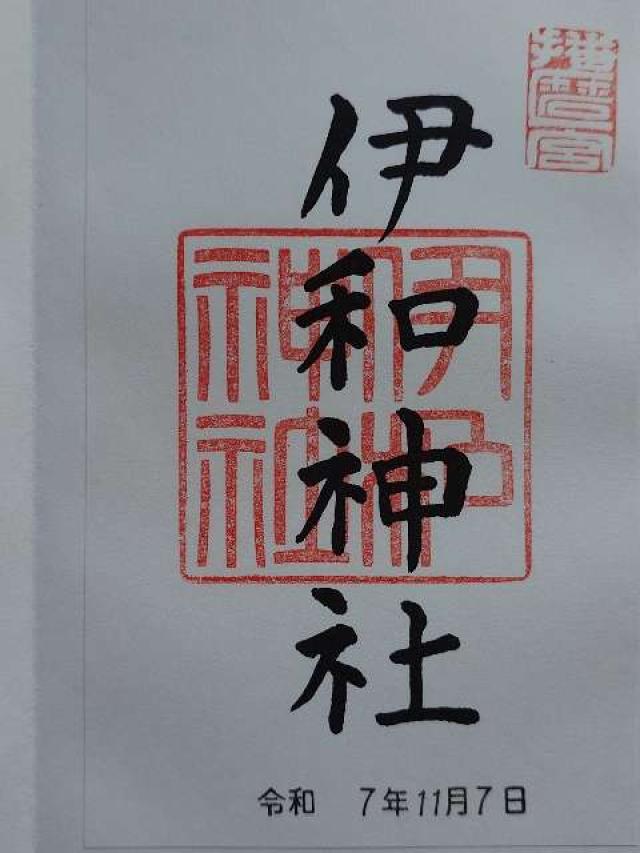 播磨一宮
伊和神社
伊和神社
令和 7年11月7日